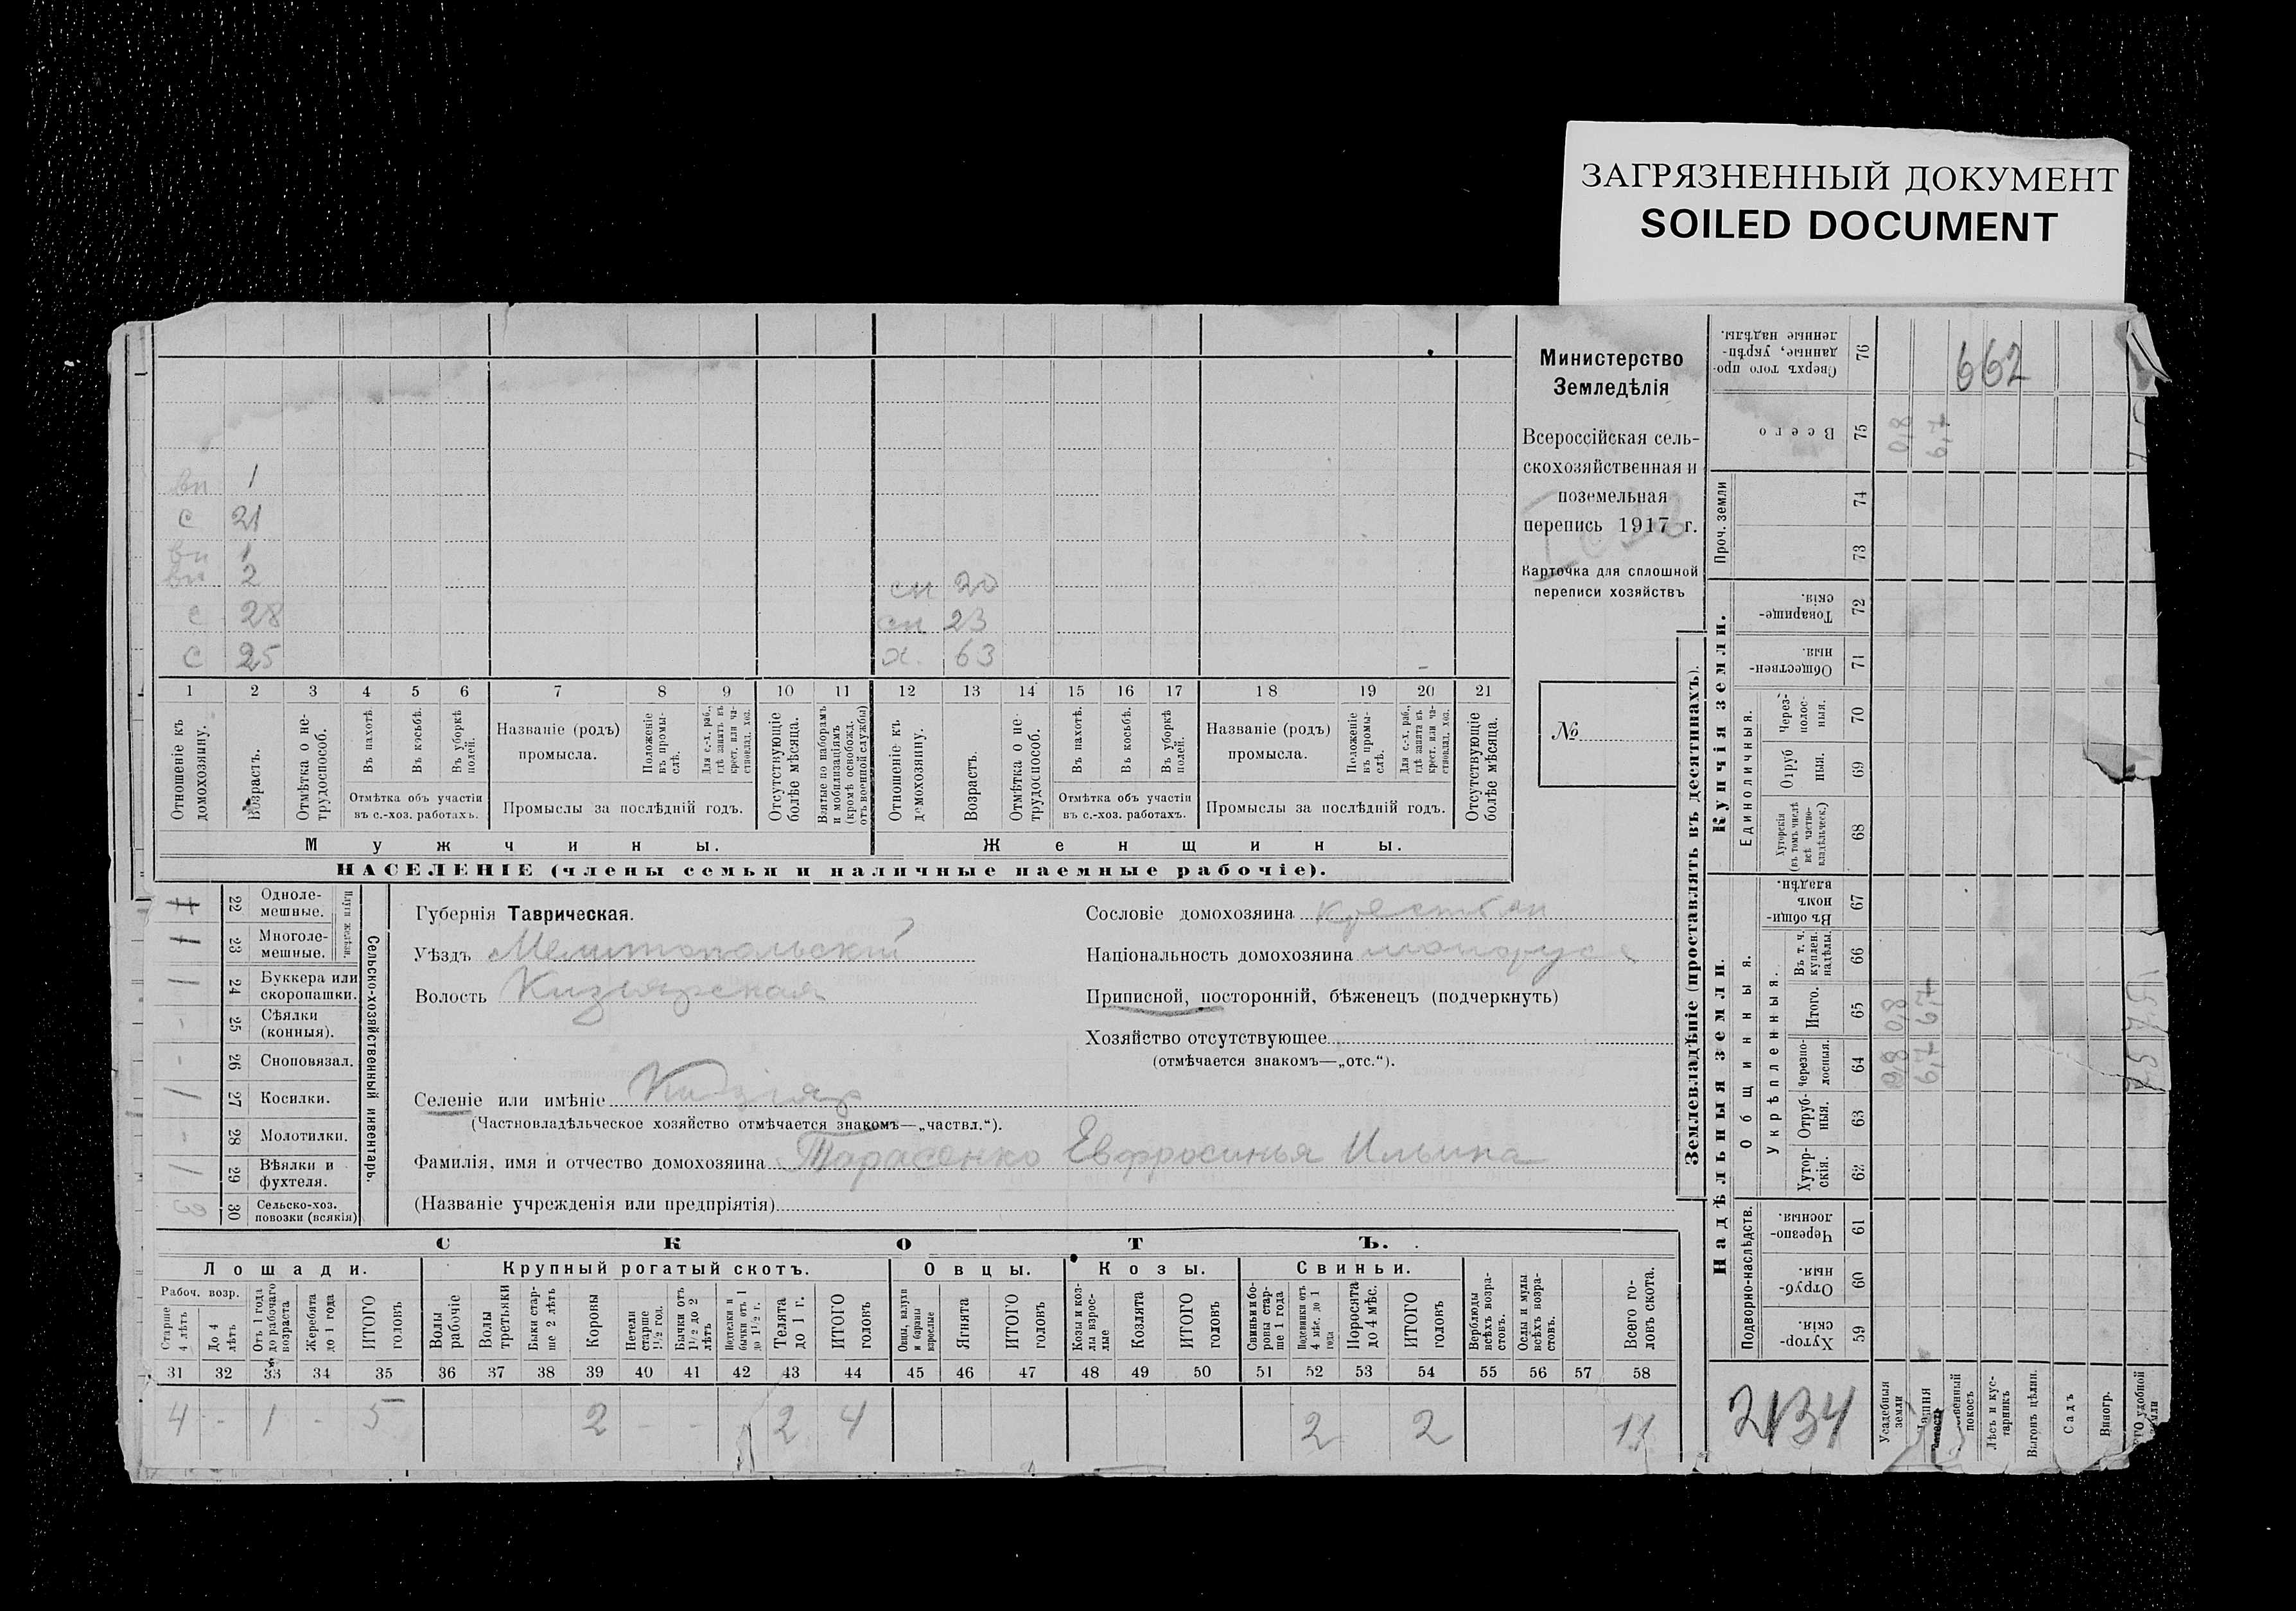 ЗАГРЯЗНЕННЫЙ ДОКУМЕНТ
SOILED DOCUMENT
вн 1
с 21
вн 1
вн 2
с 28
с 25
сн 20
сн 23
х. 63
1 2 3 4 5 6 7 8 9 10 11 12 13 14 15 16 17 18 19 20 21
Отношеніе къ домохозяину.
Возрастъ.
Отмѣтка о нетрудоспособ.
Въ пахотѣ.
Въ косьбѣ.
Въ уборкѣ полей.
Отмѣтка объ участіи въ с.-хоз. работахъ.
Названіе (родъ) промысла.
Положеніе въ промыслѣ.
Для с.-х. раб., гдѣ занятъ въ крест. или частновлад. хоз.
Промыслы за послѣдній годъ.
Отсутствующіе болѣе мѣсяца.
Взятые по наборамъ и мобилизаціямъ (кромѣ освобожд. отъ военной службы)
Отношеніе къ домохозяину.
Возрастъ.
Отмѣтка о нетрудоспособ.
Въ пахотѣ.
Въ косьбѣ.
Въ уборкѣ полей.
Отмѣтка объ участіи въ с.-хоз. работахъ.
Названіе (родъ) промысла.
Положеніе въ промыслѣ.
Для с.-х. раб., гдѣ занята въ крест. или частновлад. хоз.
Промыслы за послѣдній годъ.
Отсутствующіе болѣе мѣсяца.
Мужчины.
Женщины.
НАСЕЛЕНІЕ (члены семьи и наличные наемные рабочіе).
Министерство
Земледѣлія
Всероссійская сель-
скохозяйственная и
поземельная
перепись 1917 г.
Карточка для сплошной
переписи хозяйствъ
№
Сельско-хозяйственный инвентарь.
Плуги желѣзн.
22 Одноле-
мешные.
1 23 Многоле-
мешные.
1 24 Буккера или
скоропашки.
- 25 Сѣялки
(конныя).
- 26 Сноповязал.
1 27 Косилки.
- 28 Молотилки.
1 29 Вѣялки и
фухтеля.
3 30 Сельско-хоз.
повозки (всякія)
Губернія Таврическая.
Уѣздъ Мелитопольскій
Волость Кизіярская
Селеніе или имѣніе Кизіяр
(Частновладѣльческое хозяйство отмѣчается знакомъ—„частвл.“).
Фамилія, имя и отчество домохозяина Тарасенко Евфросинья Ильина
(Названіе учрежденія или предпріятія)
Сословіе домохозяина крестьян
Національность домохозяина малорусс
Приписной, посторонній, бѣженецъ (подчеркнуть)
Хозяйство отсутствующее
(отмѣчается знакомъ—„отс.“).
СКОТЪ.
Лошади. Крупный рогатый скотъ. Овцы. Козы. Свиньи.
Рабоч. возр.
Старше 4 лѣтъ
До 4 лѣтъ
Отъ 1 года до рабочаго возраста
Жеребята до 1 года
ИТОГО головъ
Волы рабочіе
Волы третьяки
Быки старше 2 лѣтъ
Коровы
Нетели старше 1½ год.
Бычки отъ 1½ до 2 лѣтъ
бычки отъ 1 до 1½ г.
Телята до 1 г.
ИТОГО головъ
Овцы, валухи и бараны взрослые
Ягнята
ИТОГО головъ
Козы и козлы взрослые
Козлята
ИТОГО головъ
Свиньи и боровы старше 1 года
Подсвинки отъ 4 мѣс. до 1 года
Поросята до 4 мѣс.
ИТОГО головъ
Верблюды всѣхъ возрастовъ.
Ослы и мулы всѣхъ возрастовъ.
Всего головъ скота.
31 32 33 34 35 36 37 38 39 40 41 42 43 44 45 46 47 48 49 50 51 52 53 54 55 56 57 58
4 - 1 - 5 2 - - 2 4 2 2 11
Землевладѣніе (проставлять въ десятинахъ).
Купчія земли.
Надѣльныя земли.
Сверхъ того проданные, укрѣпленные надѣлы. 76
662
Всего 75 0,8 6,7
Проч. земли 74
73
Товарищескія. 72
Общественныя. 71
Единоличныя.
Череполосныя. 70
Отрубныя. 69
Хуторскія (въ томъ числѣ всѣ частновладѣльческ.) 68
Общинныя.
Въ общинномъ владѣн. 67
Укрѣпленныя.
Въ т. ч. куплен. надѣлы. 66
Итого. 65 0,8 6,7
Черезполосныя. 64 0,8 6,7
Отрубныя. 63
Хуторскія. 62
Подворно-наслѣдств.
Черезполосныя. 61
Отрубныя. 60
Хуторскія. 59
2134
Усадебныя земли
Лѣсъ и кустарникъ
Выгонъ цѣлин.
Садъ
Виногр.